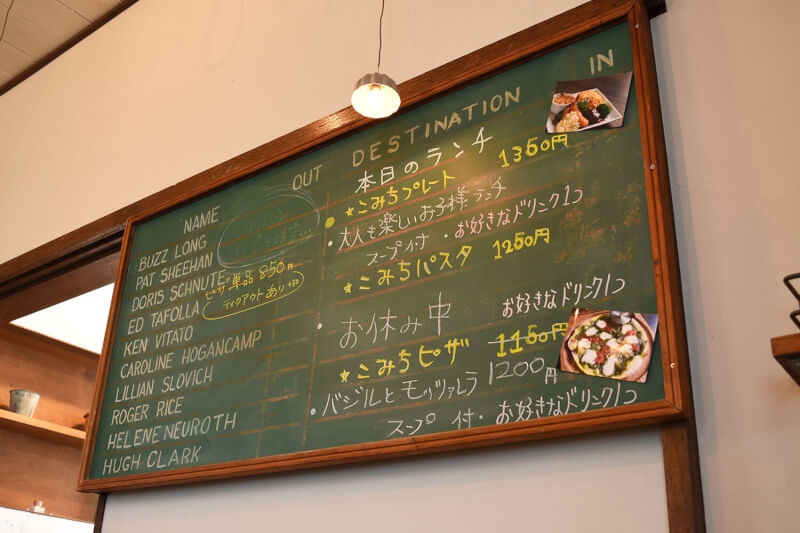 NAME OUT DESTINATION IN
BUZZ LONG
PAT SHEEHAN
DORIS SCHNUTE
ED TAFOLLA
KEN VITATO
CAROLINE HOGANCAMP
LILLIAN SLOVICH
ROGER RICE
HELENE NEUROTH
HUGH CLARK
ピザ単品 850円
テイクアウトあり +50
本日のランチ
★こみちプレート 1350円
・大人も楽しいお子様ランチ
スープ付・お好きなドリンク1つ
★こみちパスタ 1250円
・お休み中 お好きなドリンク1つ
★こみちピザ 1150円
・バジルとモッツァレラ 1200円
スープ付・お好きなドリンク1つ